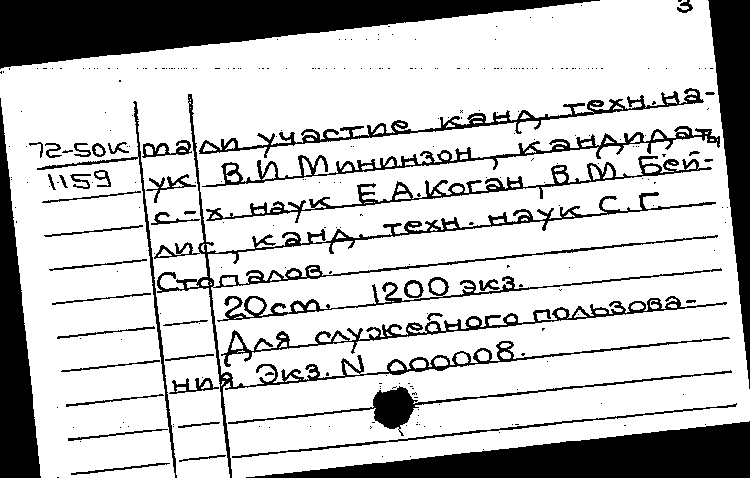 3
72-50к тали участие канд. техн. на-
1159 ук В.И. Мининзон, кандидаты
с.-х. наук Е.А. Коган, В.М. Бей-
лис, канд. техн. наук С.Г.
Стопалов.
20 cm. 1200 экз.
Для служебного пользова-
ния. Экз. N 000008.